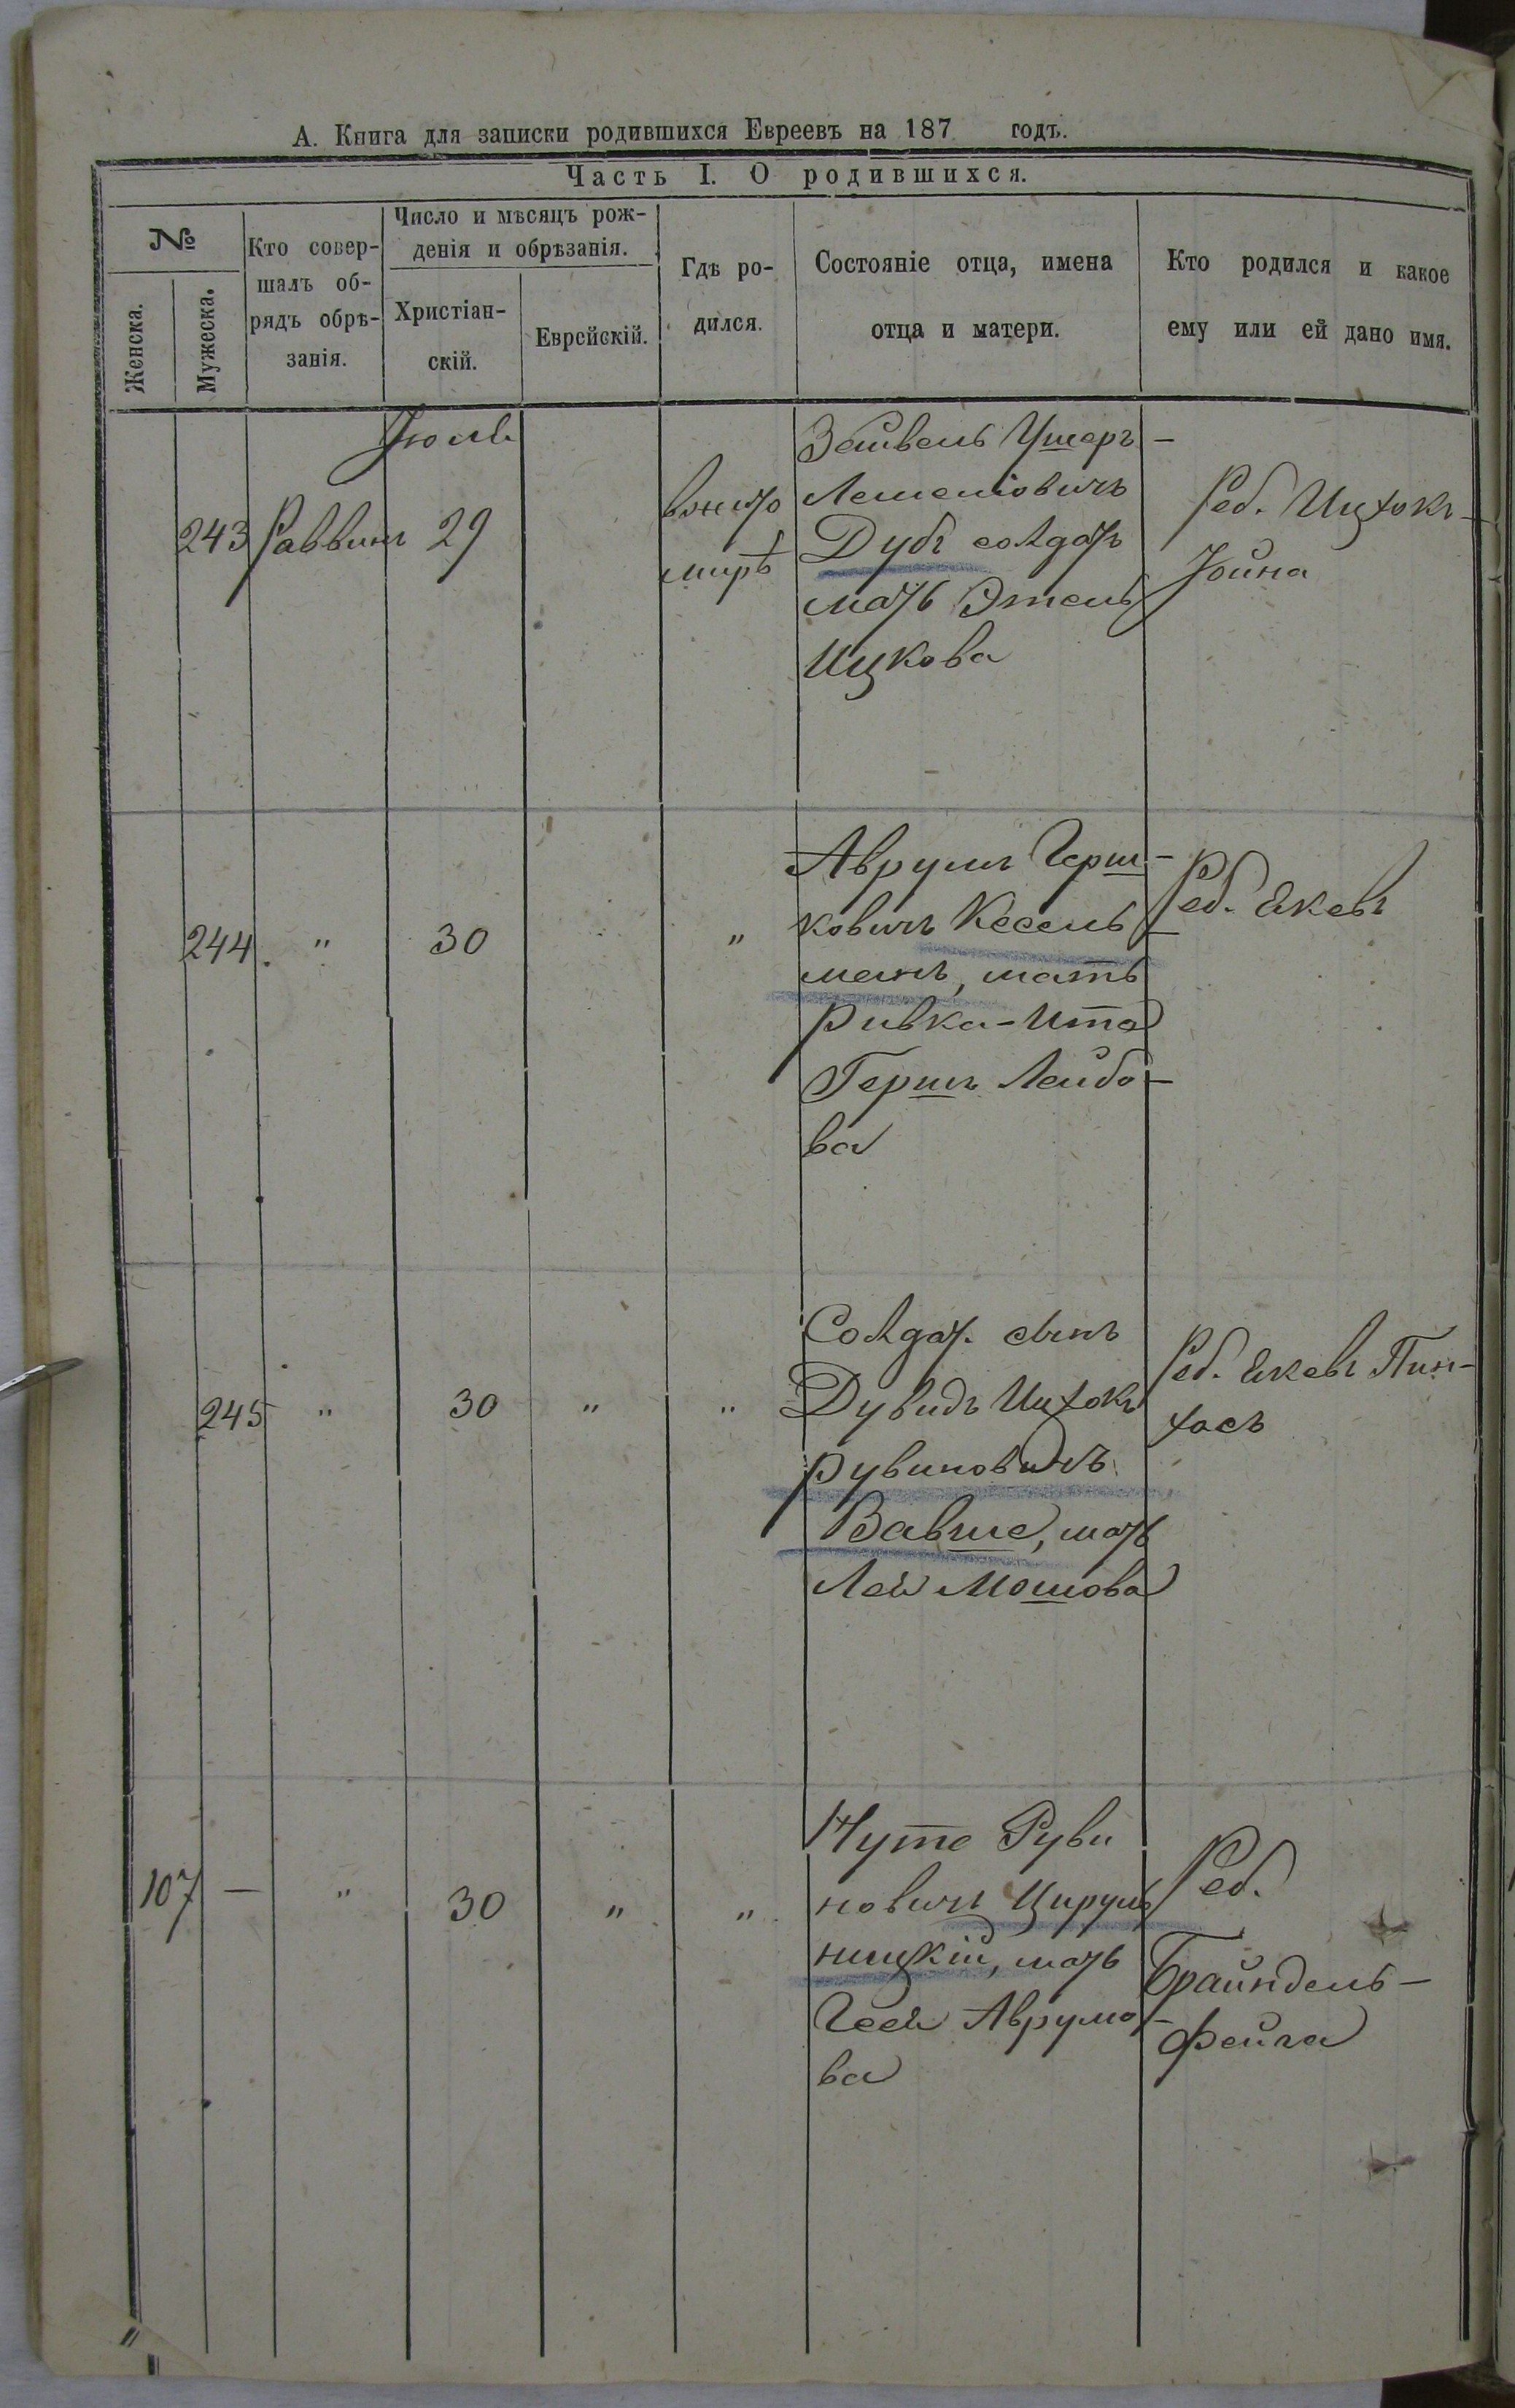 А. Книга для записки родившихся Евреевъ на 187 годъ.
Часть I. О родившихся.
№
Женска.
Мужеска.
Кто совер-
шалъ об-
рядъ обрѣ-
занія.
Число и мѣсяцъ рож-
денія и обрѣзанія.
Христіан-
скій.
Еврейскій.
Гдѣ ро-
дился.
Состояніе отца, имена
отца и матери.
Кто родился и какое
ему или ей дано имя.
Іюль
243
Раввинъ
29
вжито
мирѣ
Зейвель Ушеръ-
Дубъ солдатъ
мать Этель
Ицкова
Реб. Ицхокъ-
Іойна
244
"
30
"
Аврумъ Герш-
ковичъ Кесель-
манъ, мать
Ривка-Ита
Гершъ Лейбо-
ва
Реб. Екевъ
245
"
30
"
"
Солдат. сынъ
Дувидъ Ицхокъ
Рувиновичъ
Вавше, мать
Лея Мошова
Реб. Екевъ Пин-
хасъ
107
—
"
30
"
"
Нуте Руви
новичъ Цируль
ницкій, мать
Геея Аврумо-
ва
Реб.
Брайндель-
Фейга